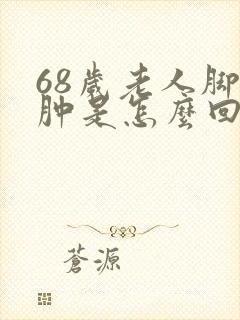 68歲老人脚
肿是怎麼回
蒼源